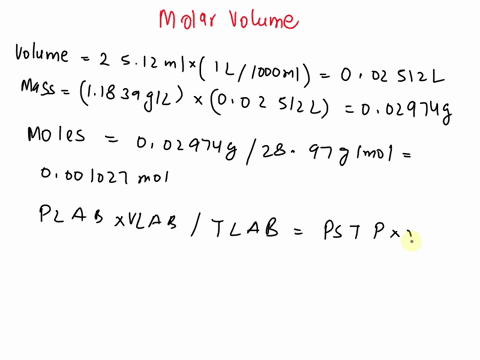 Molar Volume
Volume = 25.12ml×(1L/1000ml) = 0.02512L
Mass = (1.1839g/L) × (0.02512L) = 0.02974g
Moles = 0.02974g/28.97g/mol =
0.001027 mol
PLAB×VLAB / TLAB = PSTP×